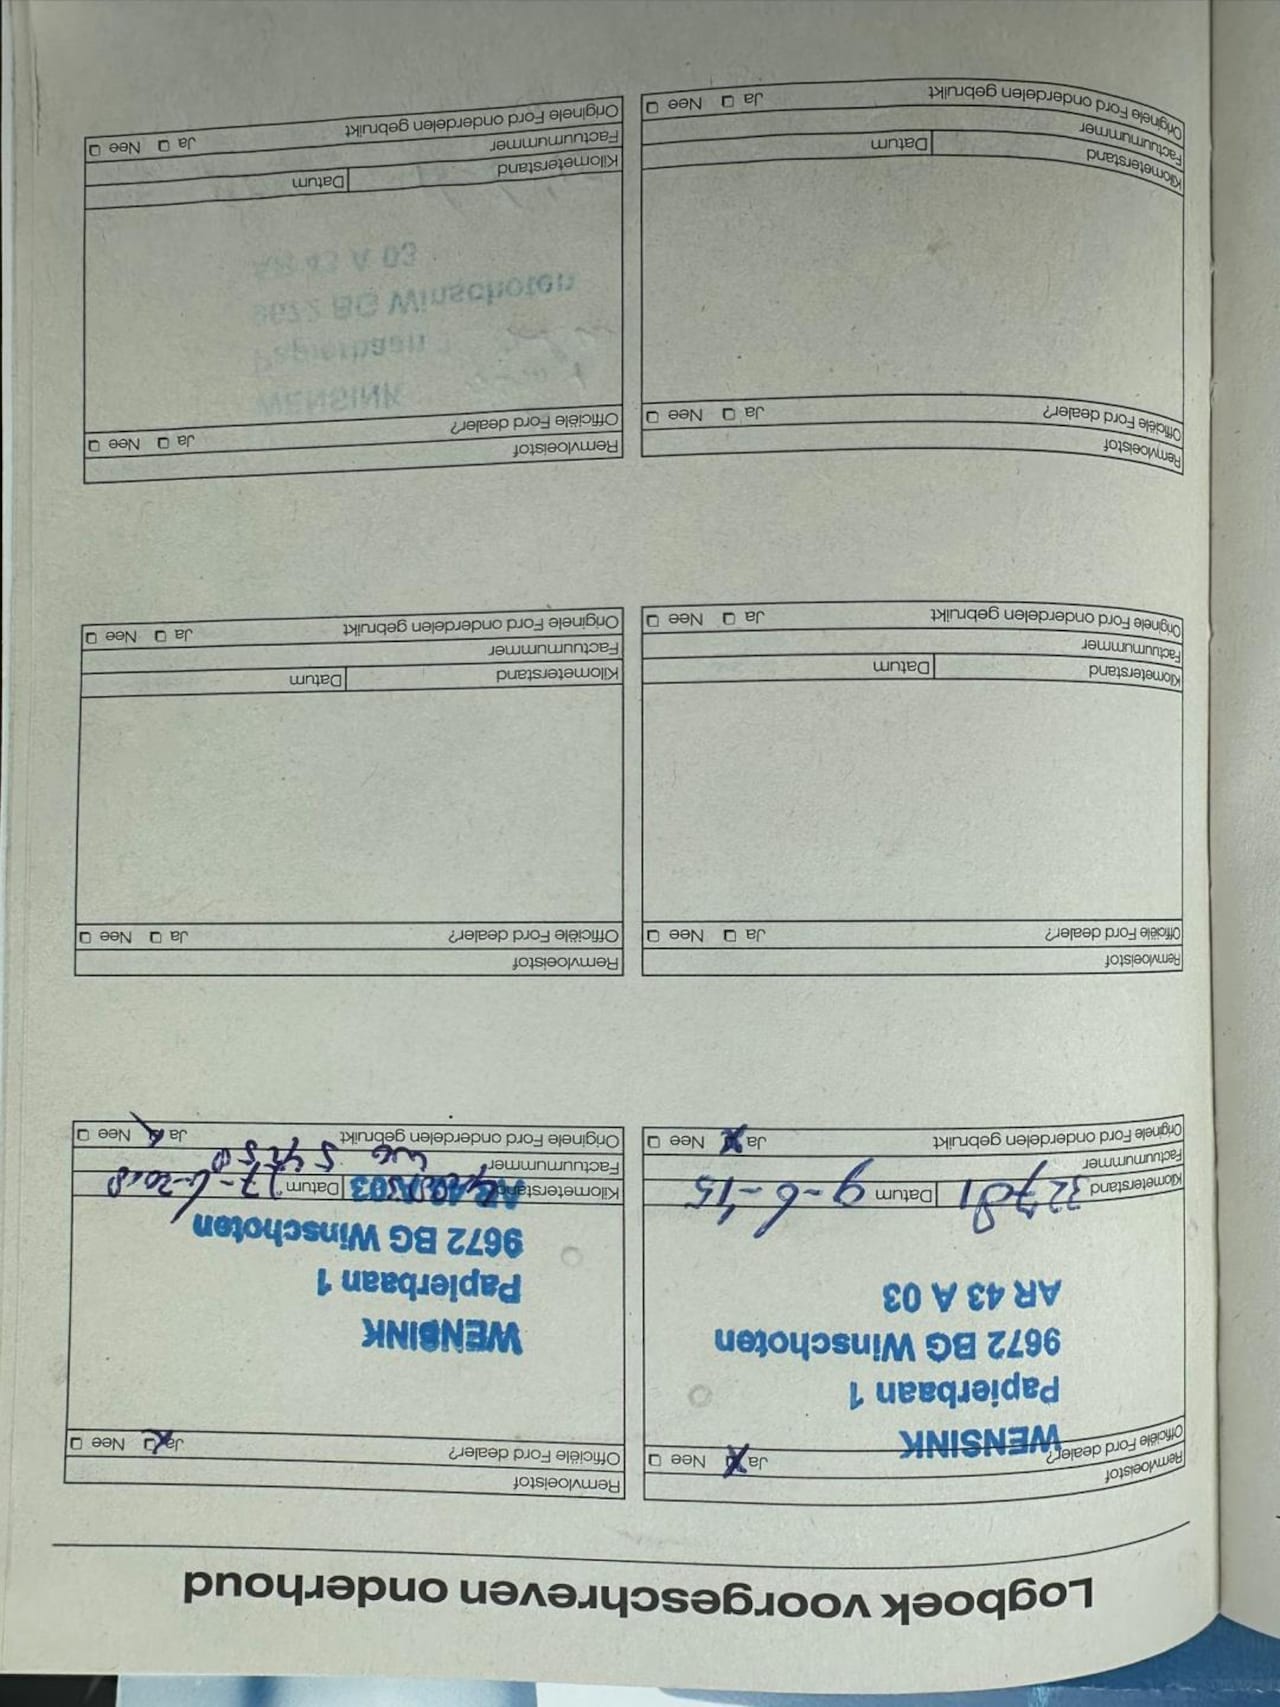 Logboek voorgeschreven onderhoud
Remvloeistof
Officiële Ford dealer? Ja Nee
WENSINK
Papierbaan 1
9672 BG Winschoten
AR 43 A 03
Kilometerstand 32781 Datum 9-6-15
Factuurnummer
Originele Ford onderdelen gebruikt Ja Nee
Remvloeistof
Officiële Ford dealer? Ja Nee
WENSINK
Papierbaan 1
9672 BG Winschoten
Kilometerstand Datum
Factuurnummer
Originele Ford onderdelen gebruikt Ja Nee
Remvloeistof
Officiële Ford dealer? Ja Nee
Kilometerstand Datum
Factuurnummer
Originele Ford onderdelen gebruikt Ja Nee
Remvloeistof
Officiële Ford dealer? Ja Nee
Kilometerstand Datum
Factuurnummer
Originele Ford onderdelen gebruikt Ja Nee
Remvloeistof
Officiële Ford dealer? Ja Nee
Kilometerstand Datum
Factuurnummer
Originele Ford onderdelen gebruikt Ja Nee
Remvloeistof
Officiële Ford dealer? Ja Nee
Kilometerstand Datum
Factuurnummer
Originele Ford onderdelen gebruikt Ja Nee